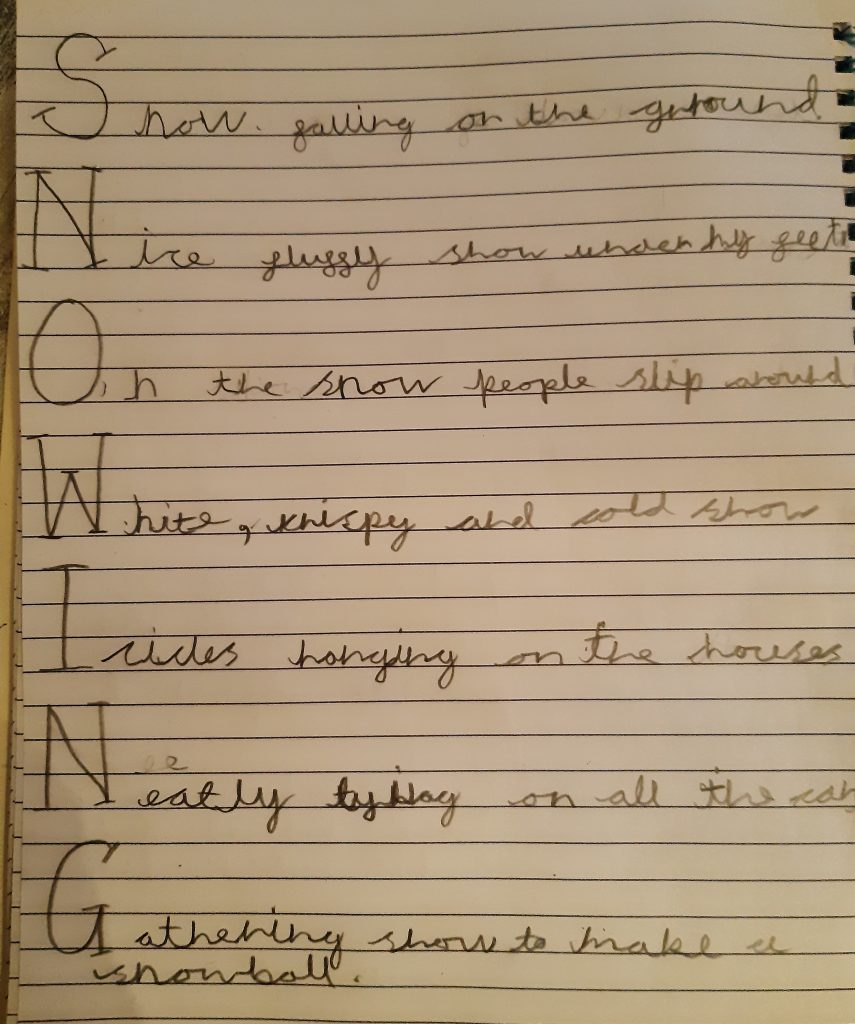 Snow falling on the ground
Nice fluffy snow under my feet
Oh the snow people slip around
White, krispy and cold snow
Icicles hanging on the houses
Neatly on all the cars
Gathering snow to make a
snowball.